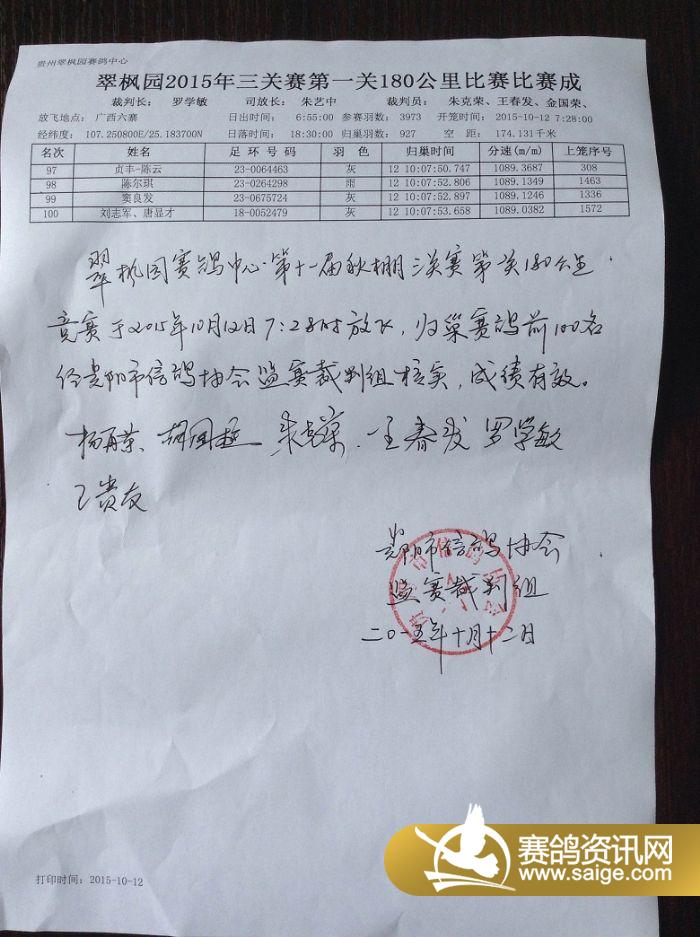 贵州翠枫园赛鸽中心
翠枫园2015年三关赛第一关180公里比赛比赛成
裁判长: 罗学敏 司放长: 朱艺中 裁判员: 朱克荣、王春发、金国荣、
放飞地点: 广西六寨 日出时间: 6:55:00 参赛羽数: 3973 开笼时间: 2015-10-12 7:28:00
经纬度: 107.250800E/25.183700N 日落时间: 18:30:00 归巢羽数: 927 空 距: 174.131千米
名次 姓名 足环号码 羽色 归巢时间 分速(m/m) 上笼序号
97 贞丰-陈云 23-0064463 灰 12 10:07:50.747 1089.3687 308
98 陈尔琪 23-0264298 雨 12 10:07:52.806 1089.1349 1463
99 窦良发 23-0675724 灰 12 10:07:52.897 1089.1246 1336
100 刘志军、唐显才 18-0052479 灰 12 10:07:53.658 1089.0382 1572
翠枫园赛鸽中心·第十一届秋棚三关赛第一关180公里
竞赛于2015年10月12日7:28时放飞,归巢赛鸽前100名
经贵阳市信鸽协会监赛裁判组核实,成绩有效。
杨再荣、 王春发 罗学敏
王贵友
贵阳市信鸽协会
监赛裁判组
二〇一五年十月十二日
打印时间: 2015-10-12
赛鸽资讯网
www.saige.com